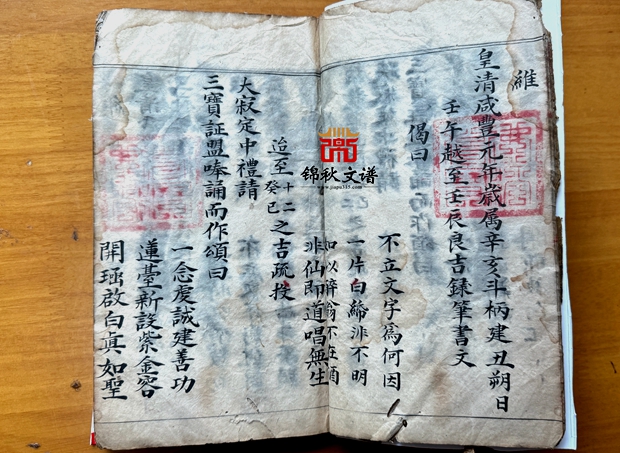 維
皇清咸豐元年歲属辛亥斗柄建丑朔日
壬午越至壬辰良吉錄筆書文
偈曰
不立文字為何因
一片白 非不明
如以醉翁不在酒
非仙即道唱無生
迨至十二癸巳之吉疏投
大寂定中禮請
三寶証盟唪誦而作頌曰
一念虔誠建善功
蓮臺新設紫金容
開瑶啟白真如聖
錦秋文谱
www.jiapu315.com